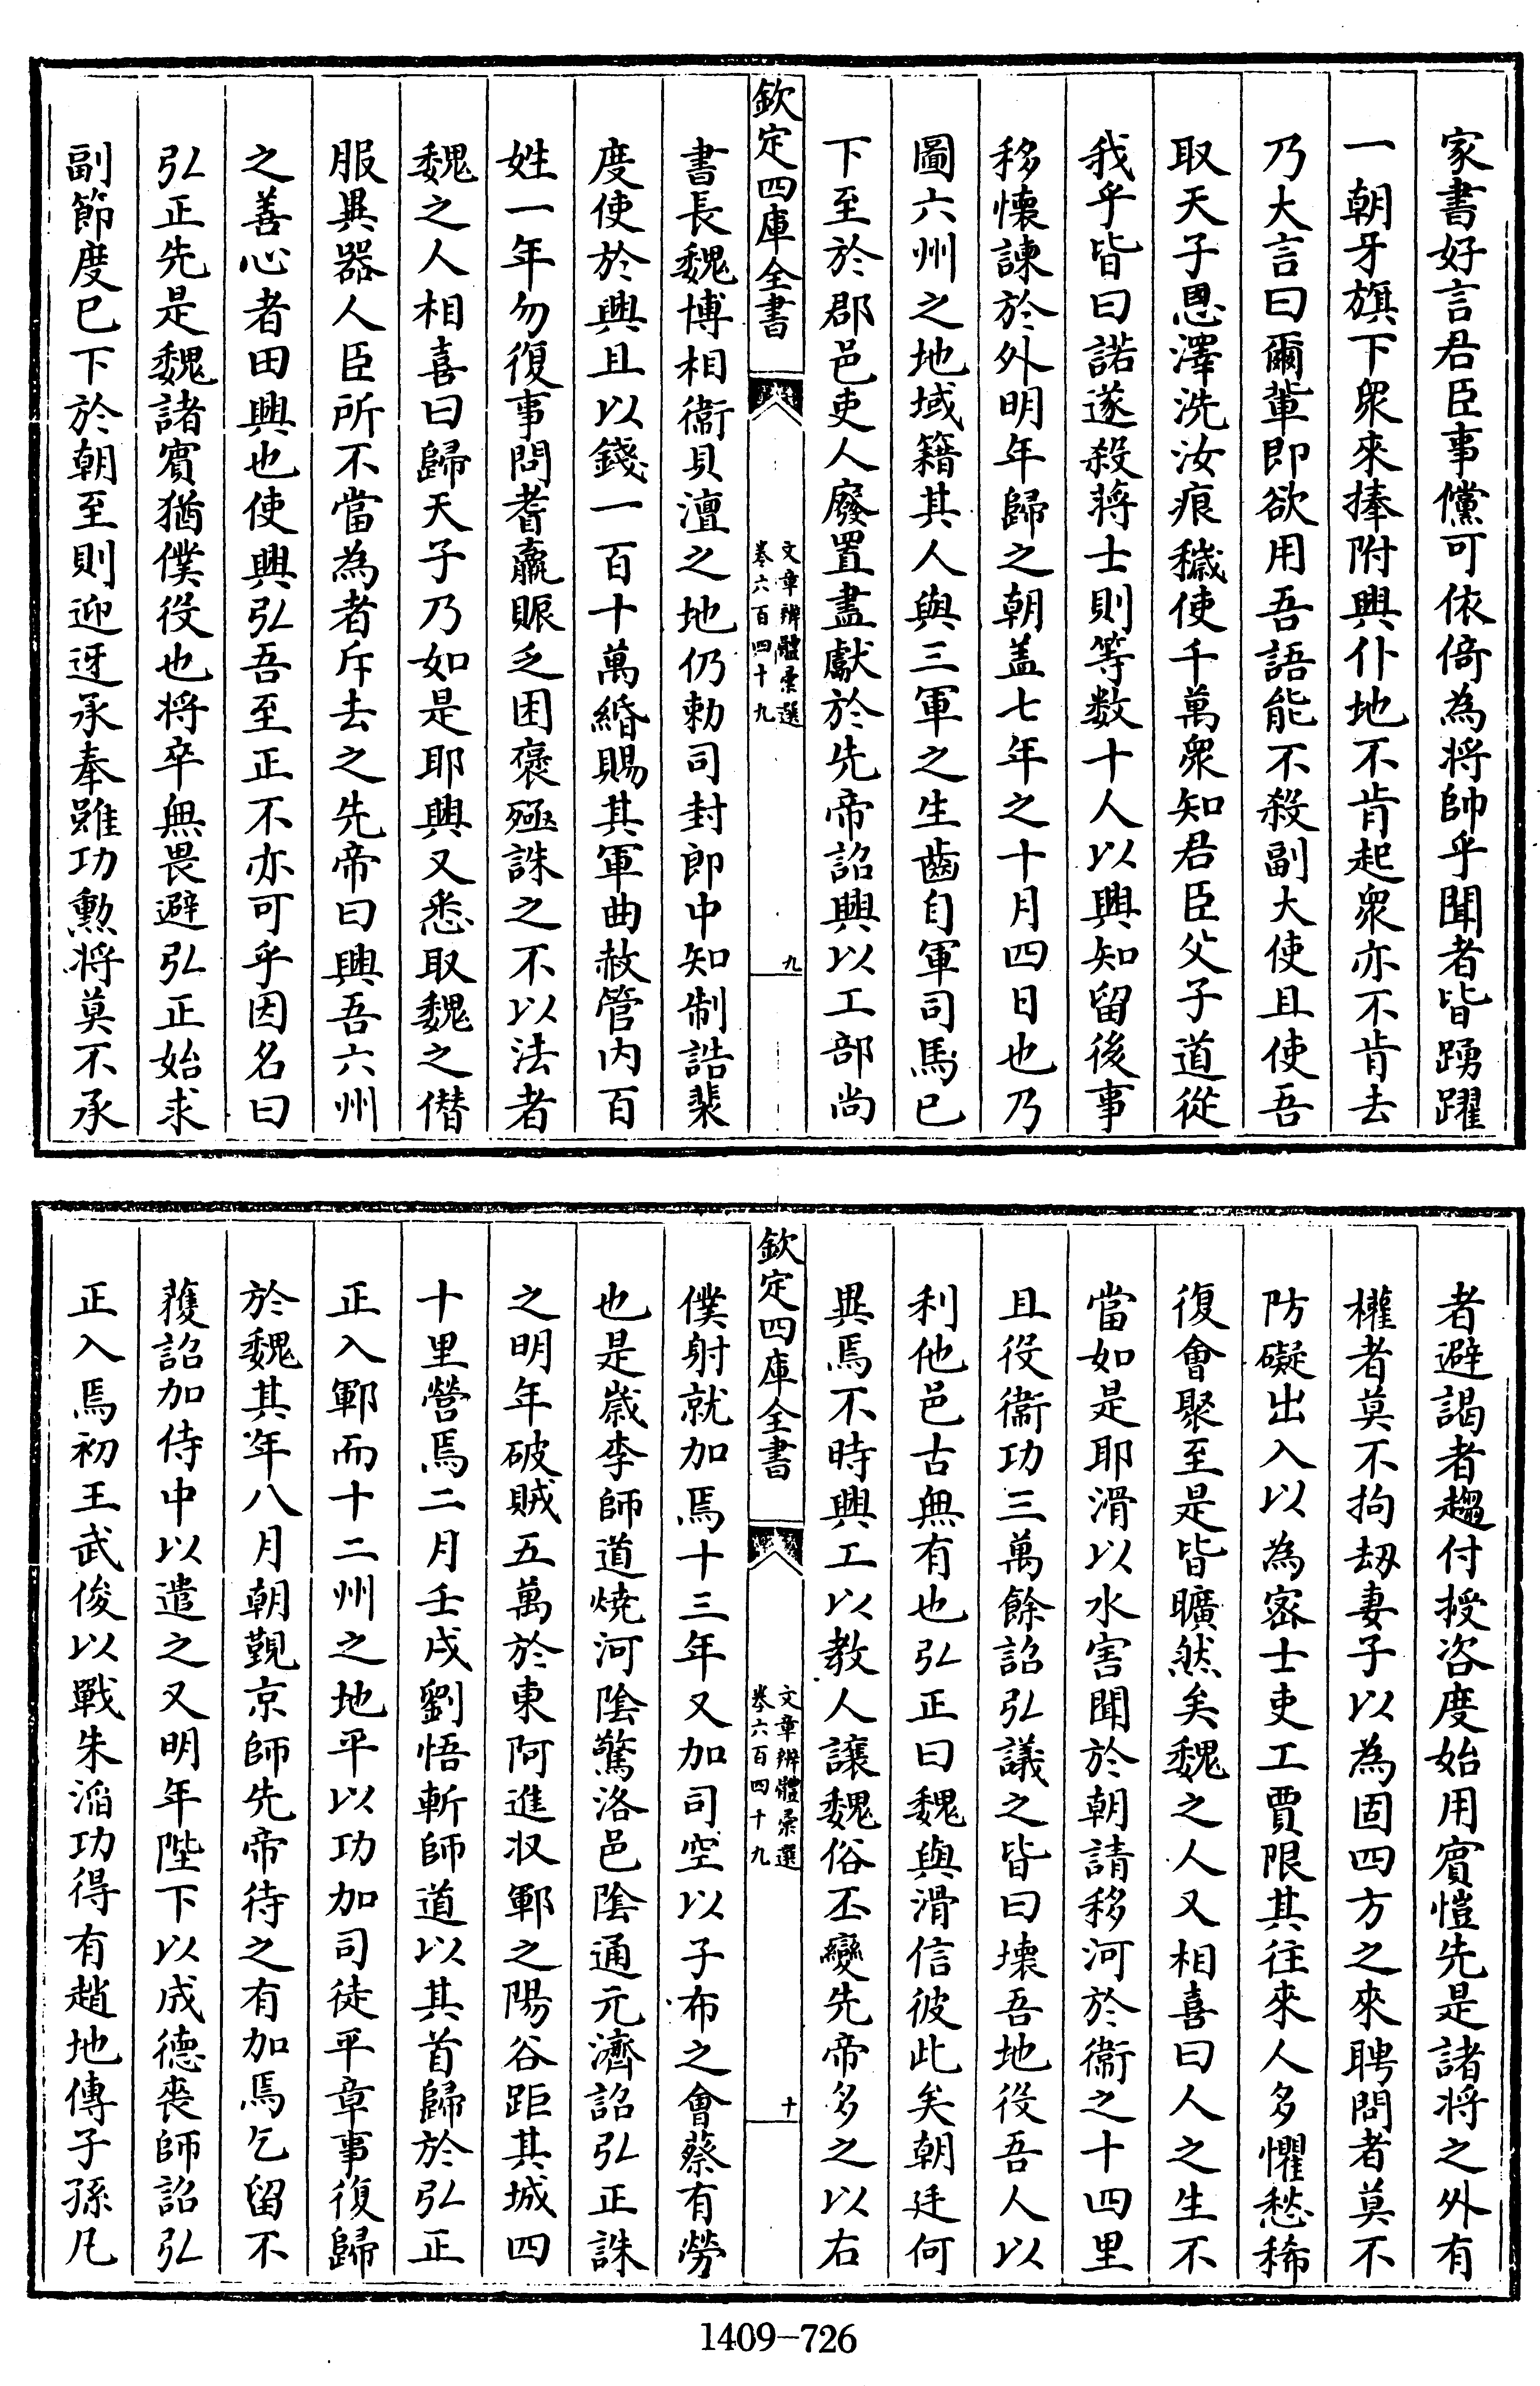 家書好言君臣事儻可依倚為將帥乎聞者皆踴躍
一朝牙旗下衆來捧附興仆地不肯起衆亦不肯去
乃大言曰爾輩即欲用吾語能不殺副大使且使吾
取天子恩澤洗汝痕穢使千萬衆知君臣父子道從
我乎皆曰諾遂殺蔣士則等数十人以興知留後事
移懐諫於外明年歸之朝盖七年之十月四日也乃
圖六州之地域籍其人與三軍之生齒自軍司馬已
下至於郡邑吏人廢置盡獻於先帝詔興以工部尚
欽定四庫全書
文章辨體彚選
卷六百四十九
九
書長魏博相衞貝澶之地仍勅司封郎中知制誥裴
度使於興且以錢一百十萬緡賜其軍曲赦管内百
姓一年勿復事問耆羸賑乏困褒殛誅之不以法者
魏之人相喜曰歸天子乃如是耶興又悉取魏之僭
服異器人臣所不當為者斥去之先帝曰興吾六州
之善心者田興也使興弘吾至正不亦可乎因名曰
弘正先是魏諸賓猶僕役也将卒無畏避弘正始求
副節度已下於朝至則迎迓承奉雖功勲将莫不承
者避謁者趨付授咨度始用賓愷先是諸将之外有
權者莫不拘刼妻子以為固四方之來聘問者莫不
防礙出入以為宻士吏工賈限其往來人多懼愁稀
復會聚至是皆曠然矣魏之人又相喜曰人之生不
當如是耶滑以水害聞於朝請移河於衞之十四里
且役衞功三萬餘詔弘議之皆曰壊吾地役吾人以
利他邑古無有也弘正曰魏與滑信彼此矣朝廷何
異焉不時興工以教人讓魏俗丕變先帝多之以右
欽定四庫全書
文章辨體彚選
卷六百四十九
十
僕射就加焉十三年又加司空以子布之會蔡有勞
也是歲李師道燒河陰驚洛邑陰通元濟詔弘正誅
之明年破賊五萬於東阿進収鄆之陽谷距其城四
十里營焉二月壬戌劉悟斬師道以其首歸於弘正
正入鄆而十二州之地平以功加司徒平章事復歸
於魏其年八月朝覲京師先帝待之有加焉乞留不
獲詔加侍中以遣之又明年陛下以成德喪師詔弘
正入焉初王武俊以戰朱滔功得有趙地傳子孫凡
1409-726